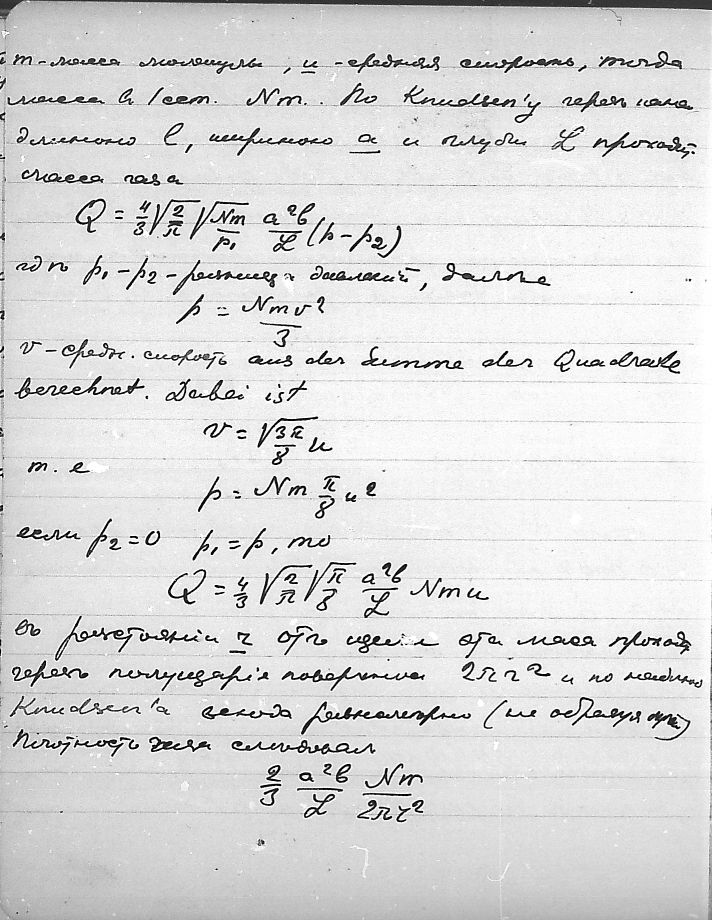 m - масса молекулы, u - средняя скорость, тогда
масса в 1 ccm. Nm. По Knudsen'у через
длиною l, шириною a и глуби L проходит
масса газа
Q = 4/3 √(2/π) √(Nm/p₁) a²b/L (p - p₂)
гдѣ p₁ - p₂ - разница давлений, далѣе
p = Nmv²/3
v - средн. скорость aus der Summe der Quadrate
berechnet. Dabei ist
v = √(3π/8) u
т. е
p = Nm π/8 u²
если p₂ = 0 p₁ = p, то
Q = 4/3 √(2/π) √(π/8) a²b/L Nmu
въ разстоянiи r отъ щели эта маса проходя
через полушарiе поверхности 2πr² и по
Knudsen'а равномерно (не образуя
Плотность газа
2/3 a²b/L Nm/2πr²